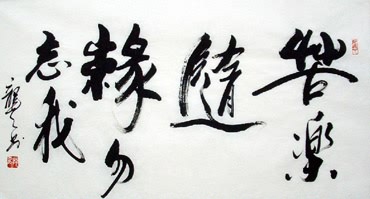 苦樂
隨
緣勿
忘我